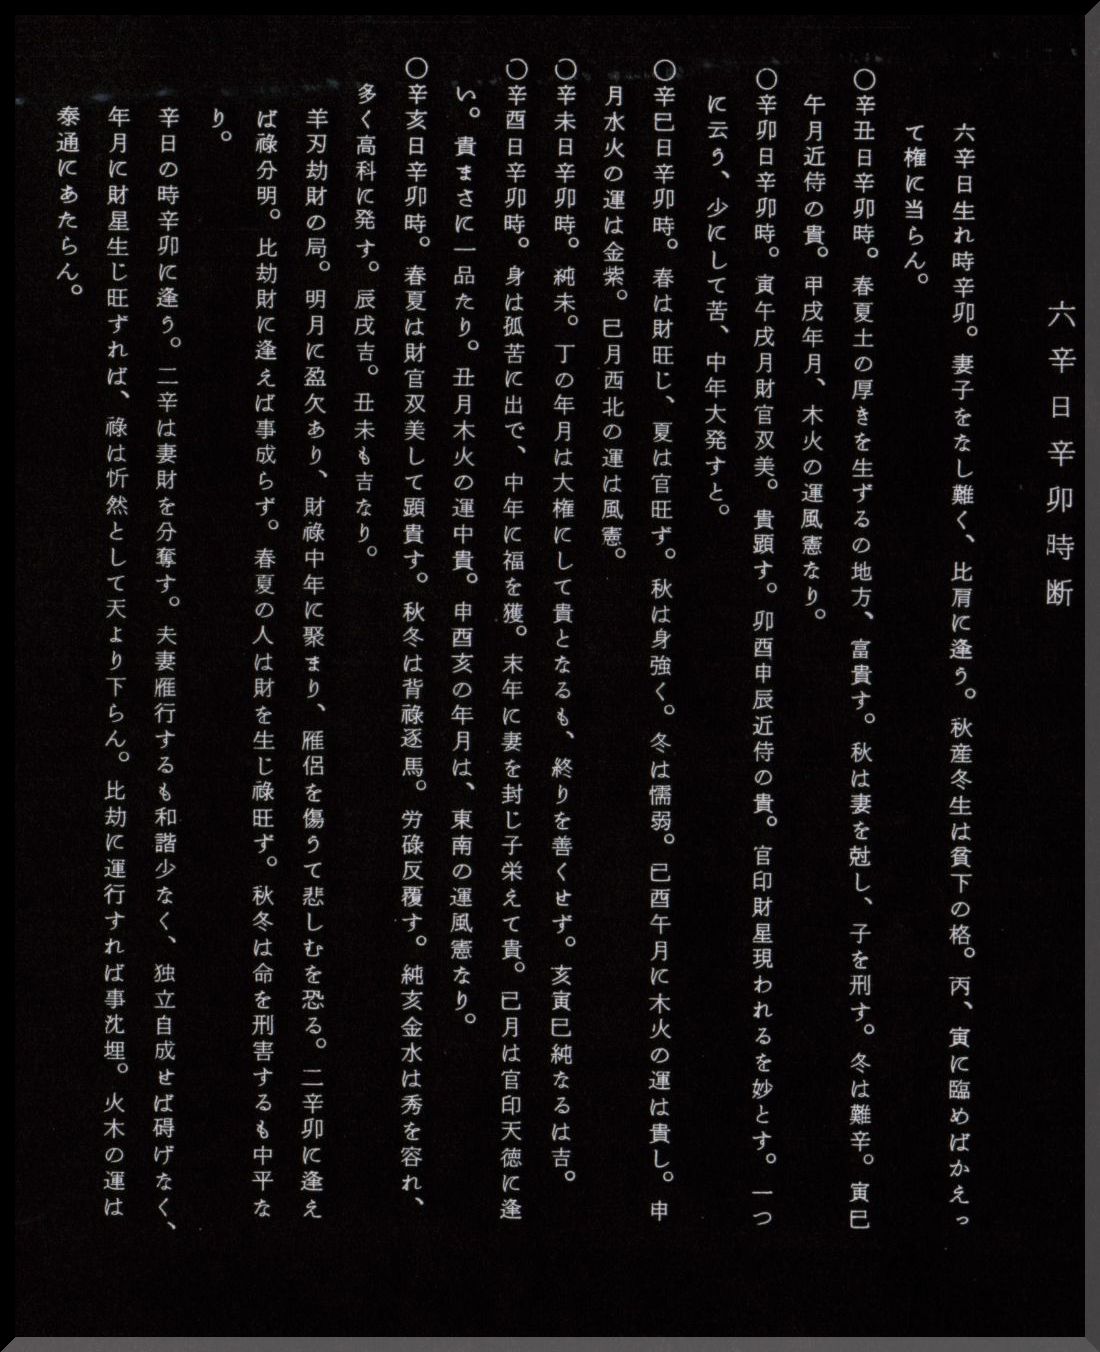 六辛日辛卯時断
六辛日生れ時辛卯。妻子をなし難く、比肩に逢う。秋産冬生は貧下の格。丙、寅に臨めばかえっ
て権に当らん。
〇辛丑日辛卯時。春夏土の厚きを生ずるの地方、富貴す。秋は妻を尅し、子を刑す。冬は難辛。寅巳
午月近侍の貴。甲戌年月、木火の運風憲なり。
〇辛卯日辛卯時。寅午戌月財官双美。貴顕す。卯酉申辰近侍の貴。官印財星現われるを妙とす。一つ
に云う、少にして苦、中年大発すと。
〇辛巳日辛卯時。春は財旺じ、夏は官旺ず。秋は身強く。冬は懦弱。巳酉午月に木火の運は貴し。申
月水火の運は金紫。巳月西北の運は風憲。
〇辛未日辛卯時。純未。丁の年月は大権にして貴となるも、終りを善くせず。亥寅巳純なるは吉。
〇辛酉日辛卯時。身は孤苦に出で、中年に福を獲。末年に妻を封じ子栄えて貴。巳月は官印天徳に逢
い。貴まさに一品たり。丑月木火の運中貴。申酉亥の年月は、東南の運風憲なり。
〇辛亥日辛卯時。春夏は財官双美して顕貴す。秋冬は背祿逐馬。労碌反覆す。純亥金水は秀を容れ、
多く高科に発す。辰戌吉。丑未も吉なり。
羊刃劫財の局。明月に盈欠あり、財祿中年に聚まり、雁侶を傷うて悲しむを恐る。二辛卯に逢え
ば祿分明。比劫財に逢えば事成らず。春夏の人は財を生じ祿旺ず。秋冬は命を刑害するも中平な
り。
辛日の時辛卯に逢う。二辛は妻財を分奪す。夫妻雁行するも和諧少なく、独立自成せば碍げなく、
年月に財星生じ旺ずれば、祿は忻然として天より下らん。比劫に運行すれば事沈埋。火木の運は
泰通にあたらん。